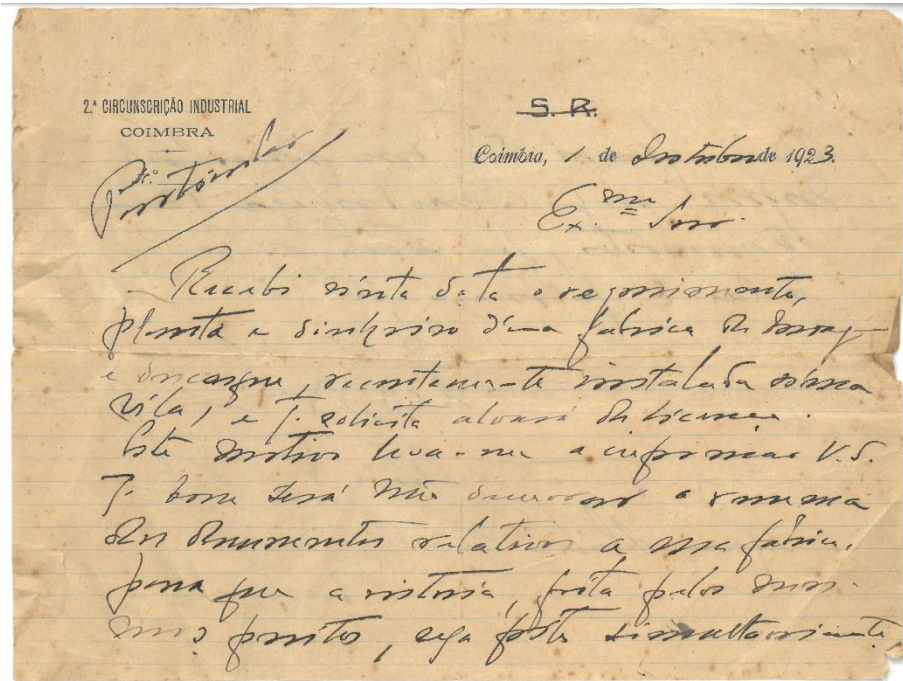 2.ª CIRCUNSCRIÇÃO INDUSTRIAL
COIMBRA
S. R.
Coimbra, 1 de Outubro de 1923.
Particular
Ex.mo Snr.
Recebi nésta data o requerimento,
planta e dinheiro d'uma fabrica de
e , recentemente instalada néssa
Vila, e q. solicita alvará de licença.
Este motivo leva-me a informar V. S.
q. bom será não a remessa
dos documentos relativos a sua fábrica,
para que a vistoria, feita pelos mes-
mos peritos, seja feita simultaneamente,